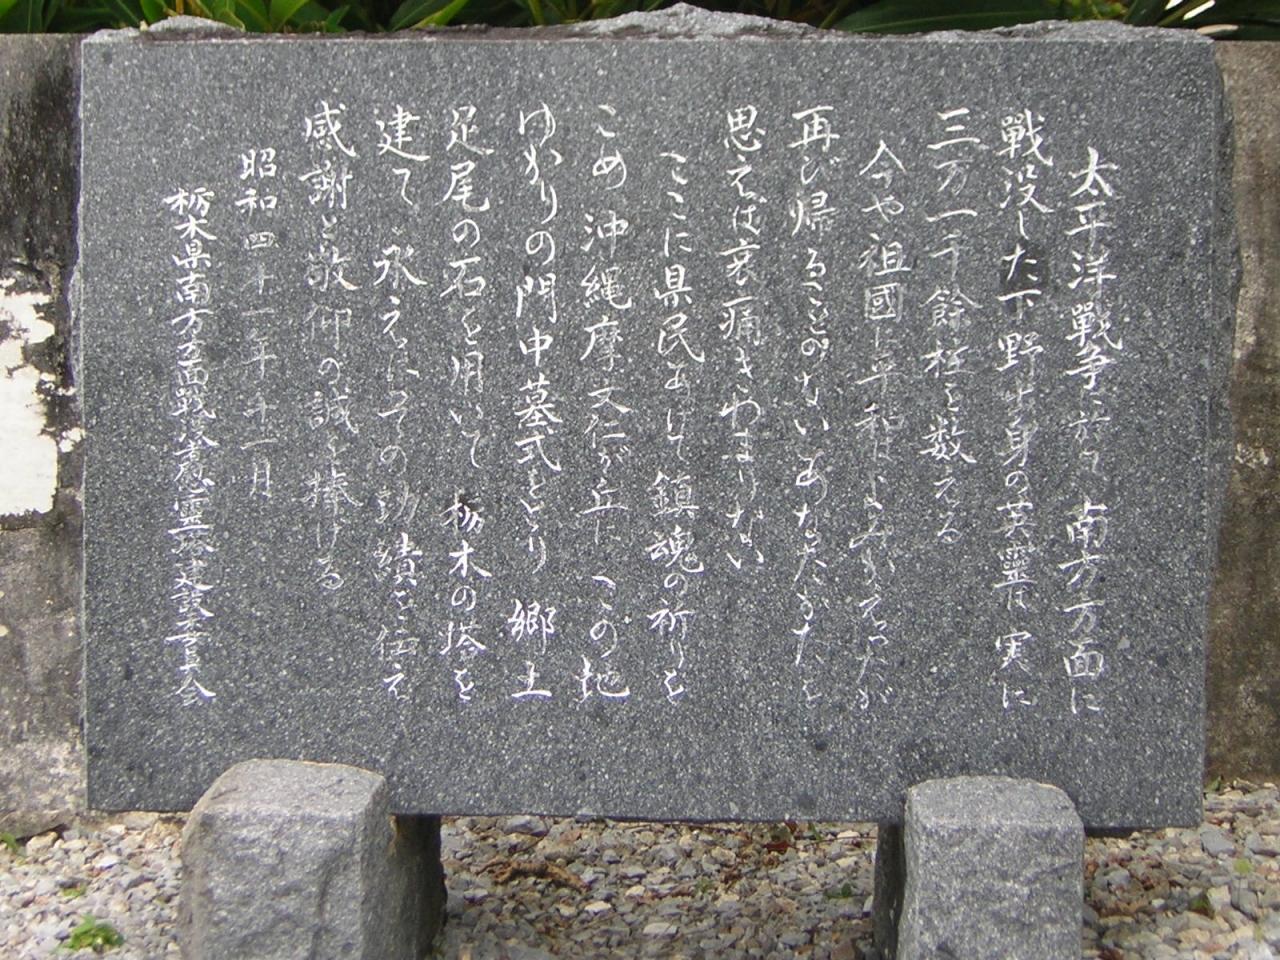 太平洋戰争に於て 南方方面に
戰没した下野出身の英靈は 実に
三万一千餘柱を数える
今や祖國に平和はよみがえったが
再び帰ることのないあなたがたを
思えば哀痛きわまりない
ここに県民あげて鎮魂の祈りを
こめ 沖縄摩文仁が丘に この地
ゆかりの門中墓式をとり 郷土
足尾の石を用いて 栃木の塔を
建て 永えにその功績を伝え
感謝と敬仰の誠を捧げる
昭和四十一年十一月
栃木県南方方面戰没者慰霊塔建設委員会